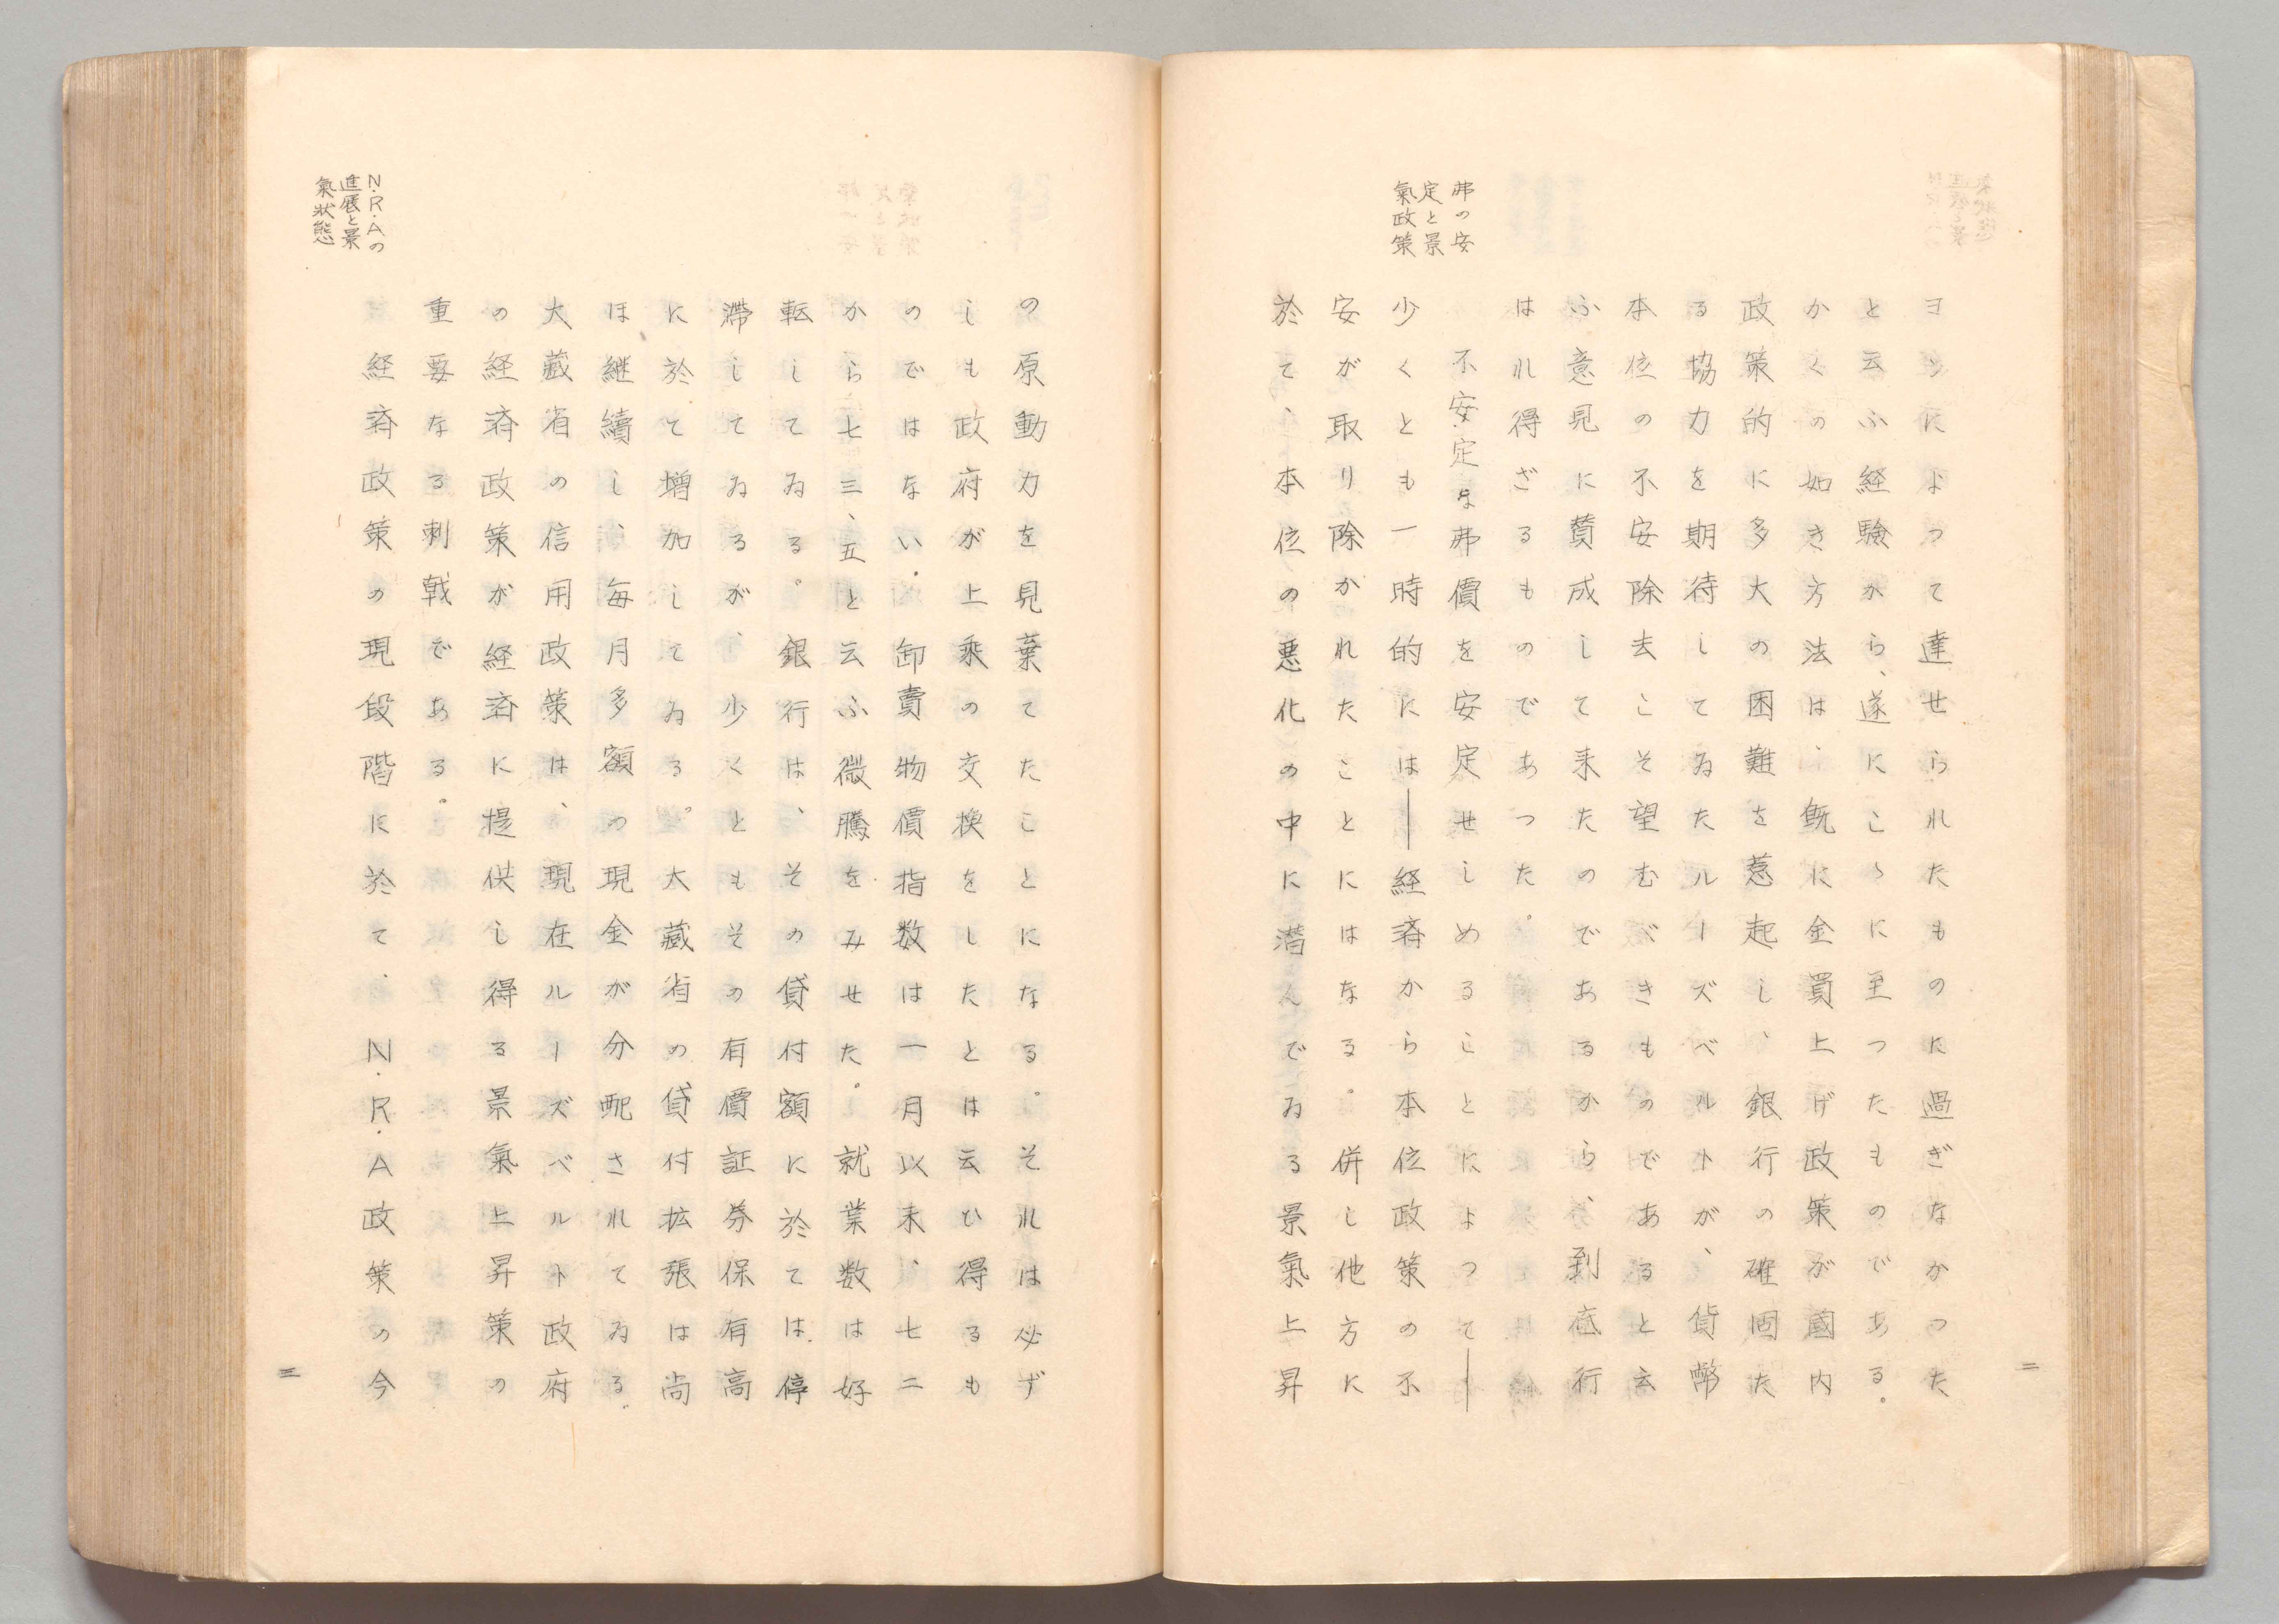 ヨンによって達せられたものに過ぎなかつた
と云ふ経験から、遂にこゝに至つたものである。
かくの如き方法は、既に金買上げ政策が國内
政策的に多大の困難を惹起し、銀行の確固た
る協力を期待してゐたルーズベルトが、貨幣
本位の不安除去こそ望むべきものであると云
ふ意見に賛成して来たのであるから、到底行
はれ得ざるものであつた。
弗の安
定と景
氣政策
不安定な弗價を安定せしめることによつて―
少くとも一時的には―経済から本位政策の不
安が取り除かれたことにはなる。併し他方に
於て、本位の悪化の中に潜んでゐる景氣上昇
二
の原動力を見棄てたことになる。それは必ず
しも政府が上乘の交換をしたとは云ひ得るも
のではない。卸賣物價指数は一月以来、七二
から七三、五と云ふ微騰をみせた。就業数は好
転してゐる。銀行は、その貸付額に於ては、停
滞してゐるが、少くともその有價証券保有高
に於て増加してゐる。大藏省の貸付拡張は尚
ほ継續し、毎月多額の現金が分配されてゐる。
大藏省の信用政策は、現在ルーズベルト政府
の経済政策が経済に提供し得る景氣上昇策の
重要なる刺戟である。
N.R.Aの
進展と景
氣狀態
経済政策の現段階に於て、N.R.A政策の今
三